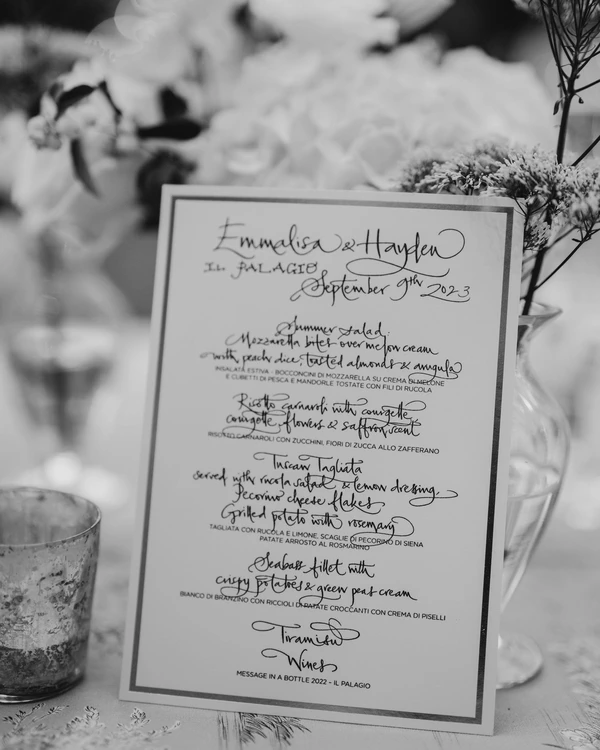 Emmalisa & Hayden
IL PALAGIO
September 9th 2023
Summer salad.
Mozzarella bites over melon cream
with peach dice, toasted almonds & arugula
INSALATA ESTIVA - BOCCONCINI DI MOZZARELLA SU CREMA DI MELONE
E CUBETTI DI PESCA E MANDORLE TOSTATE CON FILI DI RUCOLA
Risotto carnaroli with courgette,
courgette flowers & saffron scent
RISOTTO CARNAROLI CON ZUCCHINI, FIORI DI ZUCCA ALLO ZAFFERANO
Tuscan Tagliata
served with rucola salad & lemon dressing,
Pecorino cheese flakes
Grilled potato with rosemary
TAGLIATA CON RUCOLA E LIMONE, SCAGLIE DI PECORINO DI SIENA
PATATE ARROSTO AL ROSMARINO
Seabass fillet with
crispy potatoes & green peas cream
BIANCO DI BRANZINO CON RICCIOLI DI PATATE CROCCANTI CON CREMA DI PISELLI
Tiramisu
Wines
MESSAGE IN A BOTTLE 2022 - IL PALAGIO